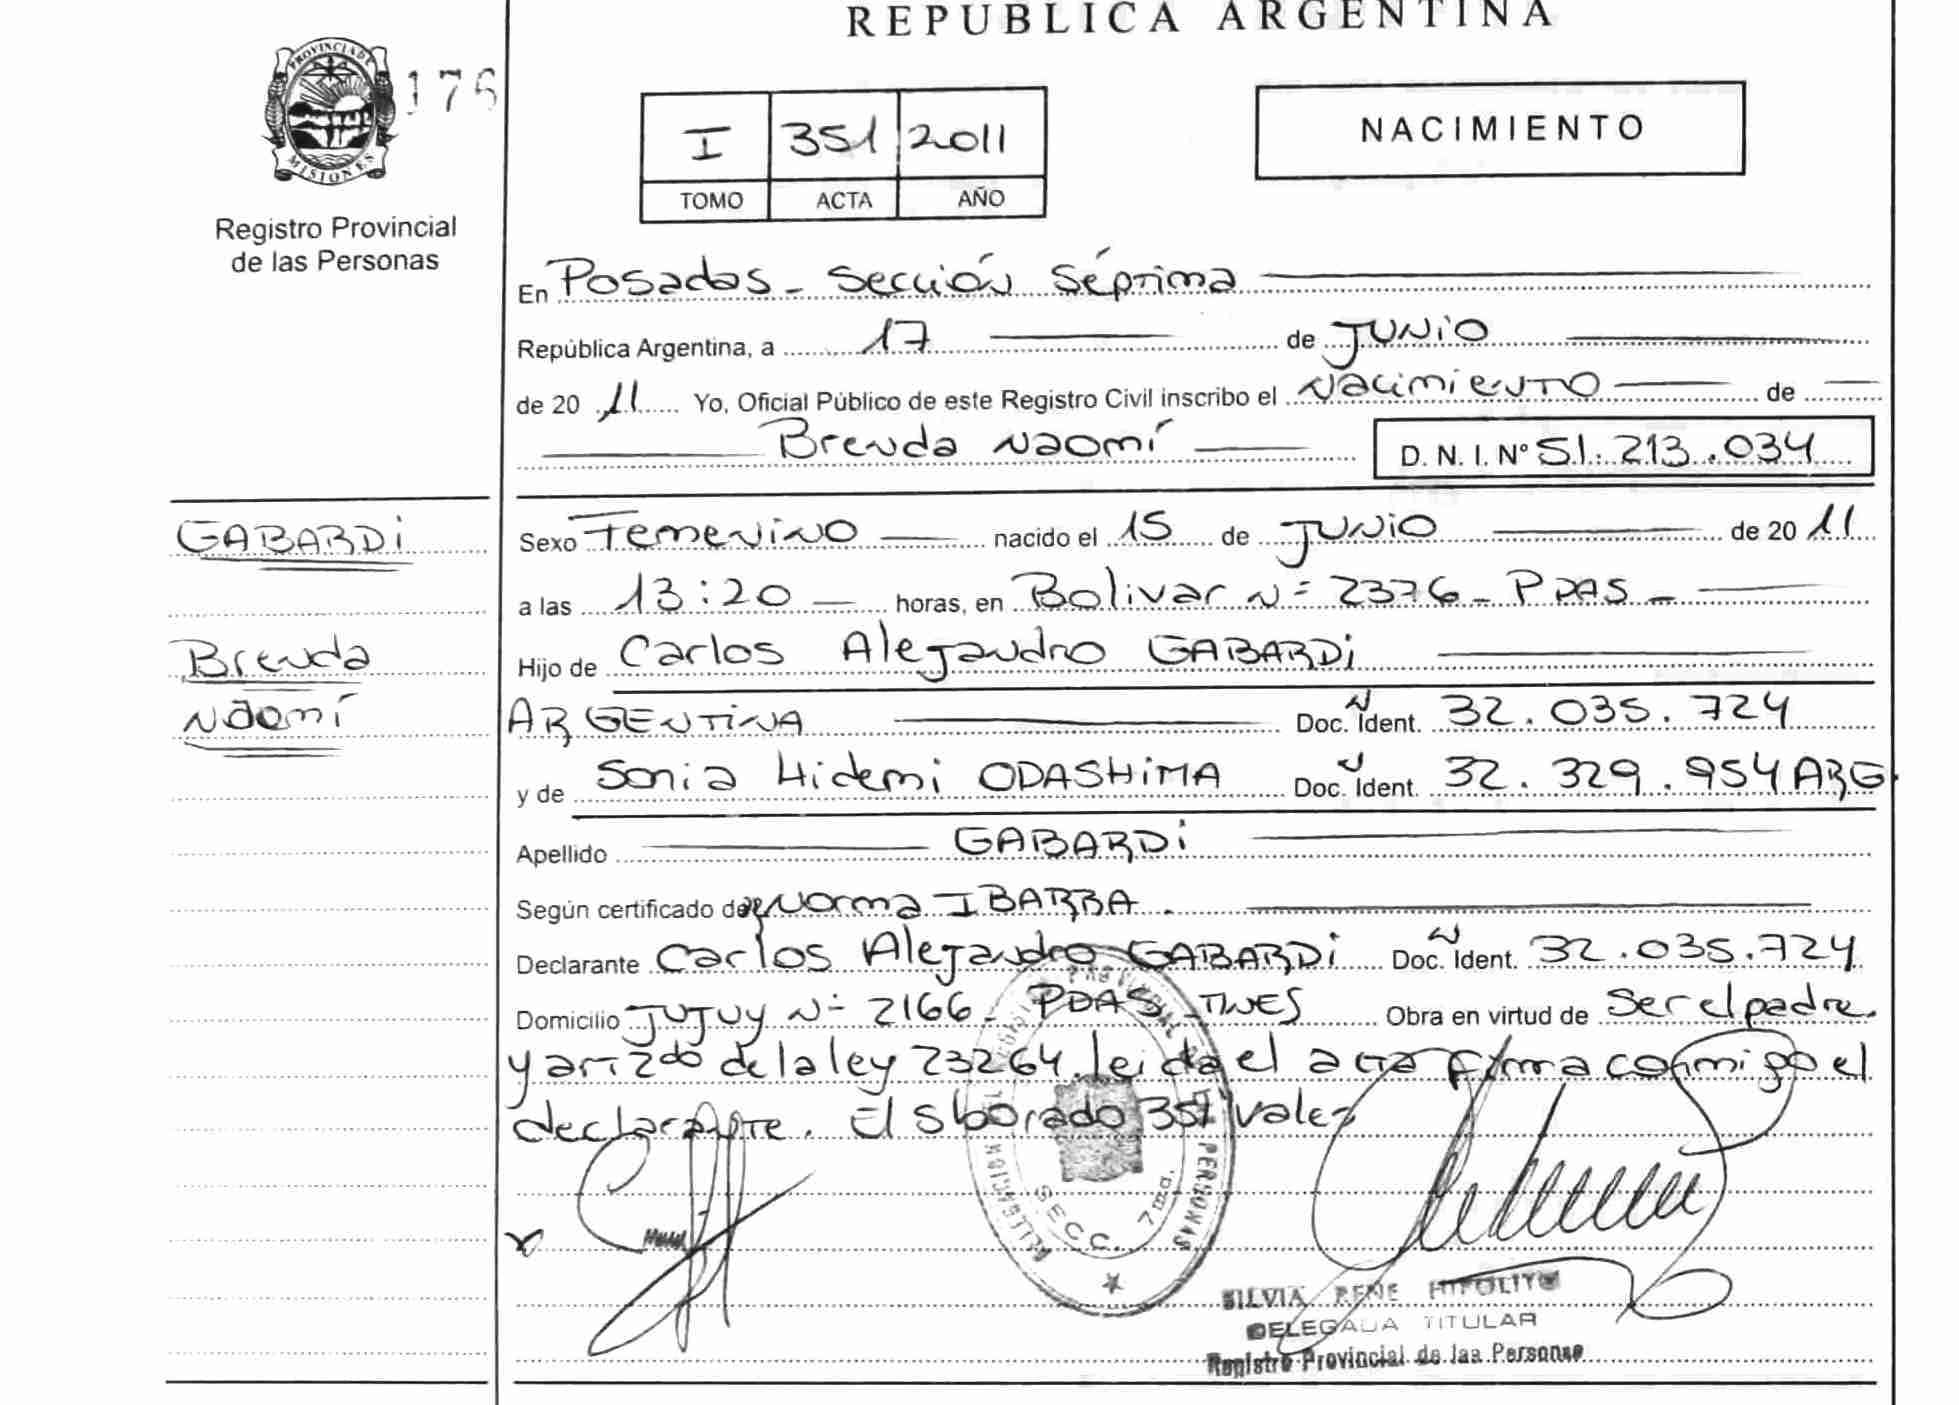 REPUBLICA ARGENTINA
PROVINCIA DE
MISIONES
176
Registro Provincial
de las Personas
I 351 2011
TOMO ACTA AÑO
NACIMIENTO
En Posadas - Sección Séptima
República Argentina, a 17 de Junio
de 20 11 Yo, Oficial Público de este Registro Civil inscribo el Nacimiento de
Brenda Naomí D. N. I. Nº 51.213.034
GABARDi
Brenda
Naomí
Sexo Femenino nacido el 15 de Junio de 20 11
a las 13:20 horas, en Bolivar Nº 2376 - PDAS -
Hijo de Carlos Alejandro GABARDi
ARGENTiNA Doc. Ident. 32.035.724
y de Sonia Hidemi ODASHiMA Doc. Ident. 32.329.954 ARG.
Apellido GABARDi
Según certificado de Norma IBARRA.
Declarante Carlos Alejandro GABARDi Doc. Ident. 32.035.724
Domicilio Jujuy Nº 2166 - PDAS Obra en virtud de ser el padre.
y art 2do de la ley 23264. leida el acta firma conmigo el
declarante. El Sborado 351 vale
SECC. 7ma.
SILVIA RENE HIPOLITO
DELEGADA TITULAR
Registro Provincial de las Personas